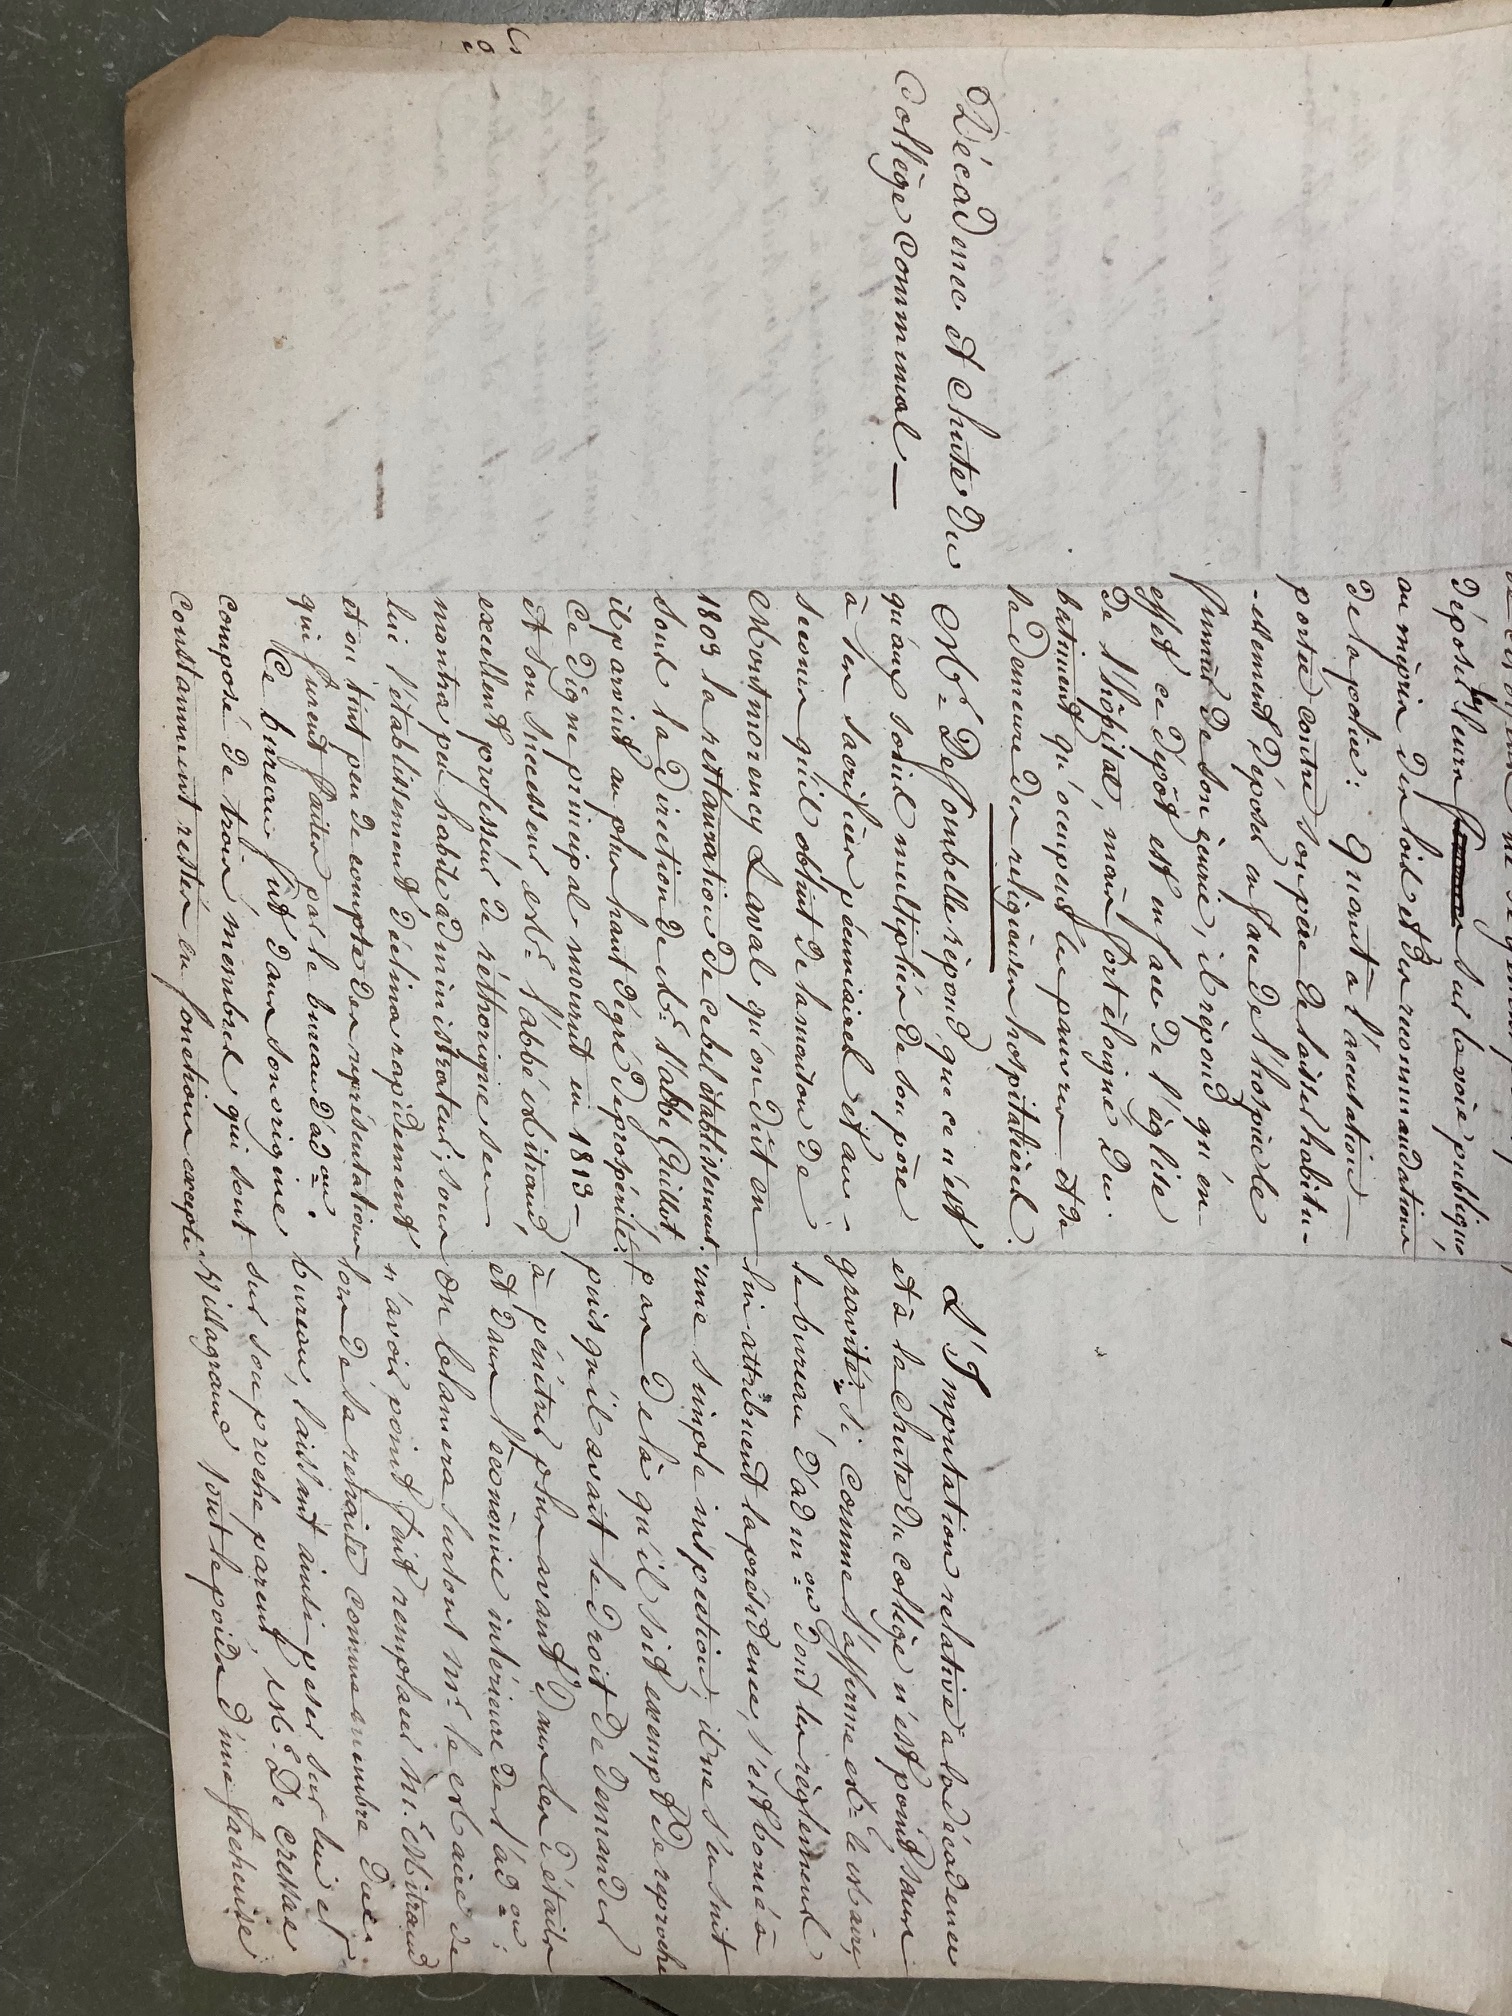 Décadence et chute du
Collège communal —
déposer leurs sur la voie publique,
au mépris des lois et des recommandations
de la police : Quant à l'accusation
portée contre son père de laisser habitu-
-ellement déposer en face de l'hospice le
fumier de son écurie, il répond qu'en
effet ce dépôt est en face de l'église
de l'hôpital, mais fort éloigné du
batiment qu'occupent les pauvres et de
la demeure des religieuses hospitalières.
Mr. Dessombelle répond que ce n'est
qu'aux soins multipliés de son père
à ses sacrifices pécuniaires et au
secours qu'il obtint de la maison de
Montmorency Laval qu'on dût en
1809 la restauration de ce bel établissement.
sous la direction de Mr. l'abbé Guillot
il parvint au plus haut dégré de prospérité.
Ce digne principal mourut en 1813 —
et son successeur, Mr. l'abbé Mitraud,
excellent professeur de réthorique se
montra peu habile administrateur ; sous
lui l'établissement déclina rapidement
et on tint peu de compte des représentations
qui furent faites par le bureau d'adon.
Ce bureau fut dans son origine
composé de trois membres qui sont
constamment restés en fonctions excepté
L'Imputation relative à la décadence
et à la chute du collège n'est point sans
gravité. si, comme l'affirme Mr. le Maire,
le bureau d'admon dont les règlements
lui attribuent la présidence, s'est borné à
une simple inspection, il ne s'en suit
pas de là qu'il soit exempt de reproche
puis qu'il avait le droit de demander
à pénétrer plus avant dans les détails
et dans l'économie intérieure de l'adon :
on blamera surtout Mr. le Maire de
n'avoir point fait remplacer Mr. Mitraud
lors de sa retraite comme membre du
bureau, laissant ainsi peser sur lui et
sur son proche parent, Mr. De Cressac
Villagrand tout le poids d'une facheuse